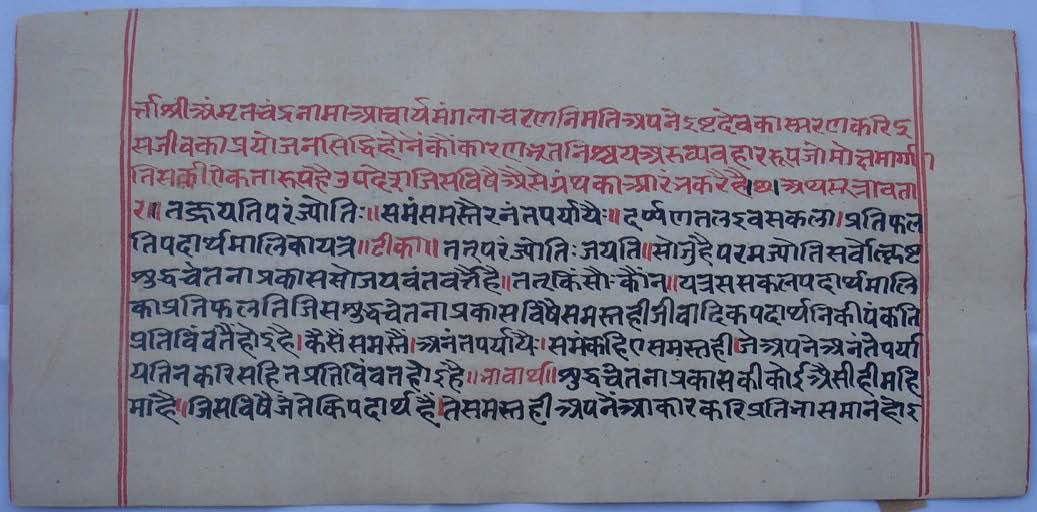 र्त्ताश्रीअंमृतचंद्रनामाआचार्यमंगलाचरणनिमतिअपनेइष्टदेवकास्मरणकरिइ
सजीवकाप्रयोजनसिद्धिहोनेंकौंकारणभूतनिश्चयअरुव्यवहाररूपजोमोक्षमार्गा
तिसकीऐकतारूपहैउपदेशजिसविषैऐसेग्रंथकाआरंभकरैहै।छ।अथसूत्रावता
र॥तज्जयतिपरंज्योतिः॥समंसमस्तैरनंतपर्यायैः॥दर्प्पणतलइवसकला।प्रतिफल
तिपदार्थमालिकायत्र॥टीका॥तत्परंज्योतिःजयति॥सोजुहैपरमज्योतिसर्वोत्कृष्ट
शुद्धचेतनाप्रकाससोजयवंतवर्त्तैहै॥तत्किंसौ-कौंन॥यत्रससकलपदार्थमालि
काप्रतिफलतिजिसशुद्धचेतनाप्रकासविषैसमस्तहीजीवादिकपदार्थनिकीपंकति
प्रतिबिंवतैंहोइहै।कैसैंसमस्तैं।अनंतपर्यायैः।समंकहिएसमस्तही।जेअपनेअनंतेपर्या
यतिनकरिसहितप्रतिबिंवतहोइहै॥भावार्थ॥शुद्धचेतनाप्रकासकीकोईऐसीहीमहि
माहै॥जिसविषैजेतेकिपदार्थहैं।तेसमस्तहीअपनेंआकारकरिप्रतिभासमानहोइ